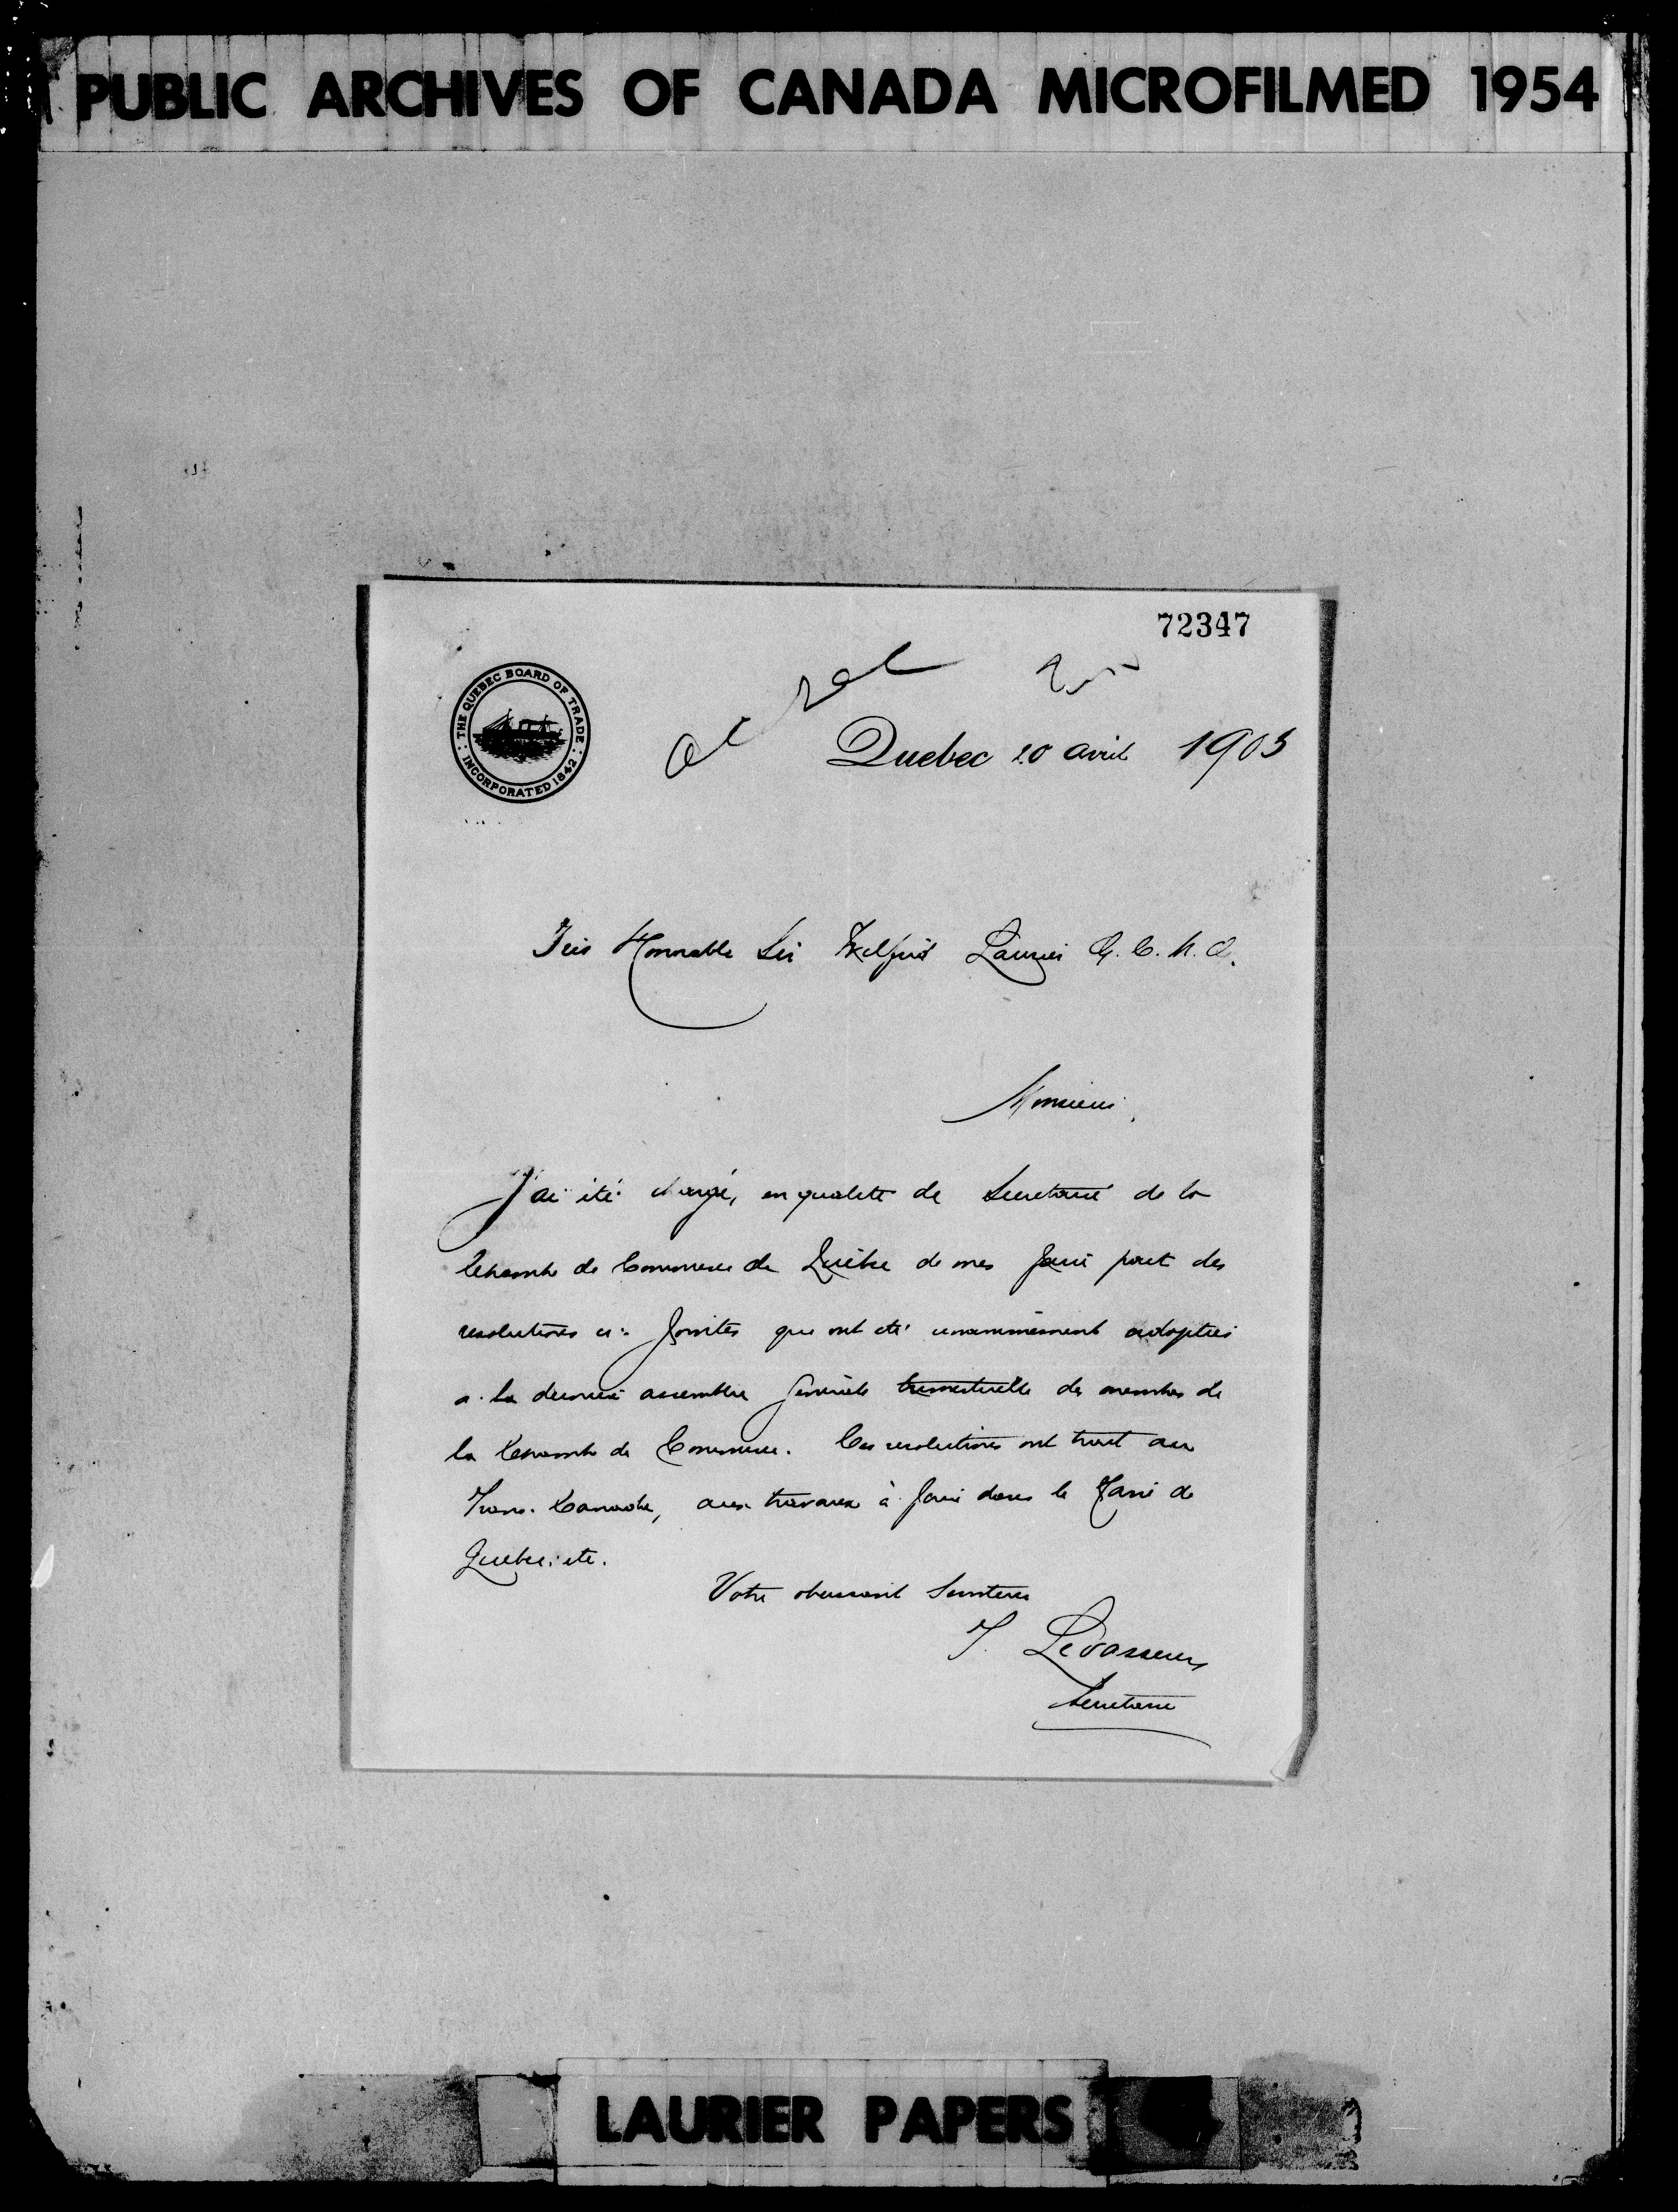 PUBLIC ARCHIVES OF CANADA MICROFILMED 1954
72347
THE QUEBEC BOARD OF TRADE
INCORPORATED 1842
Quebec 20 avril 1903
Très Honorable Sir Wilfrid Laurier G. C. M. G.
Monsieur,
J'ai été chargé, en qualité de Secrétaire de la
Chambre de Commerce de Québec de vous faire part des
résolutions ci-jointes qui ont été unanimement adoptées
à la dernière assemblée générale trimestrielle des membres de
la Chambre de Commerce. Ces résolutions ont trait au
Trans-Canada, aux travaux à faire dans le Havre de
Québec, etc.
Votre obéissant Serviteur
T. Levasseur
Secrétaire
LAURIER PAPERS